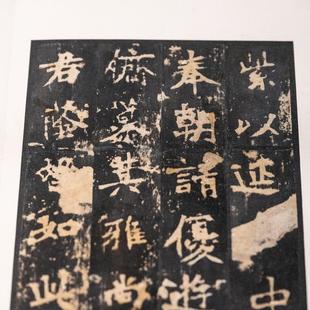 紫以延中
奉朝請優遊
儕慕其雅尚
君蔭望如此